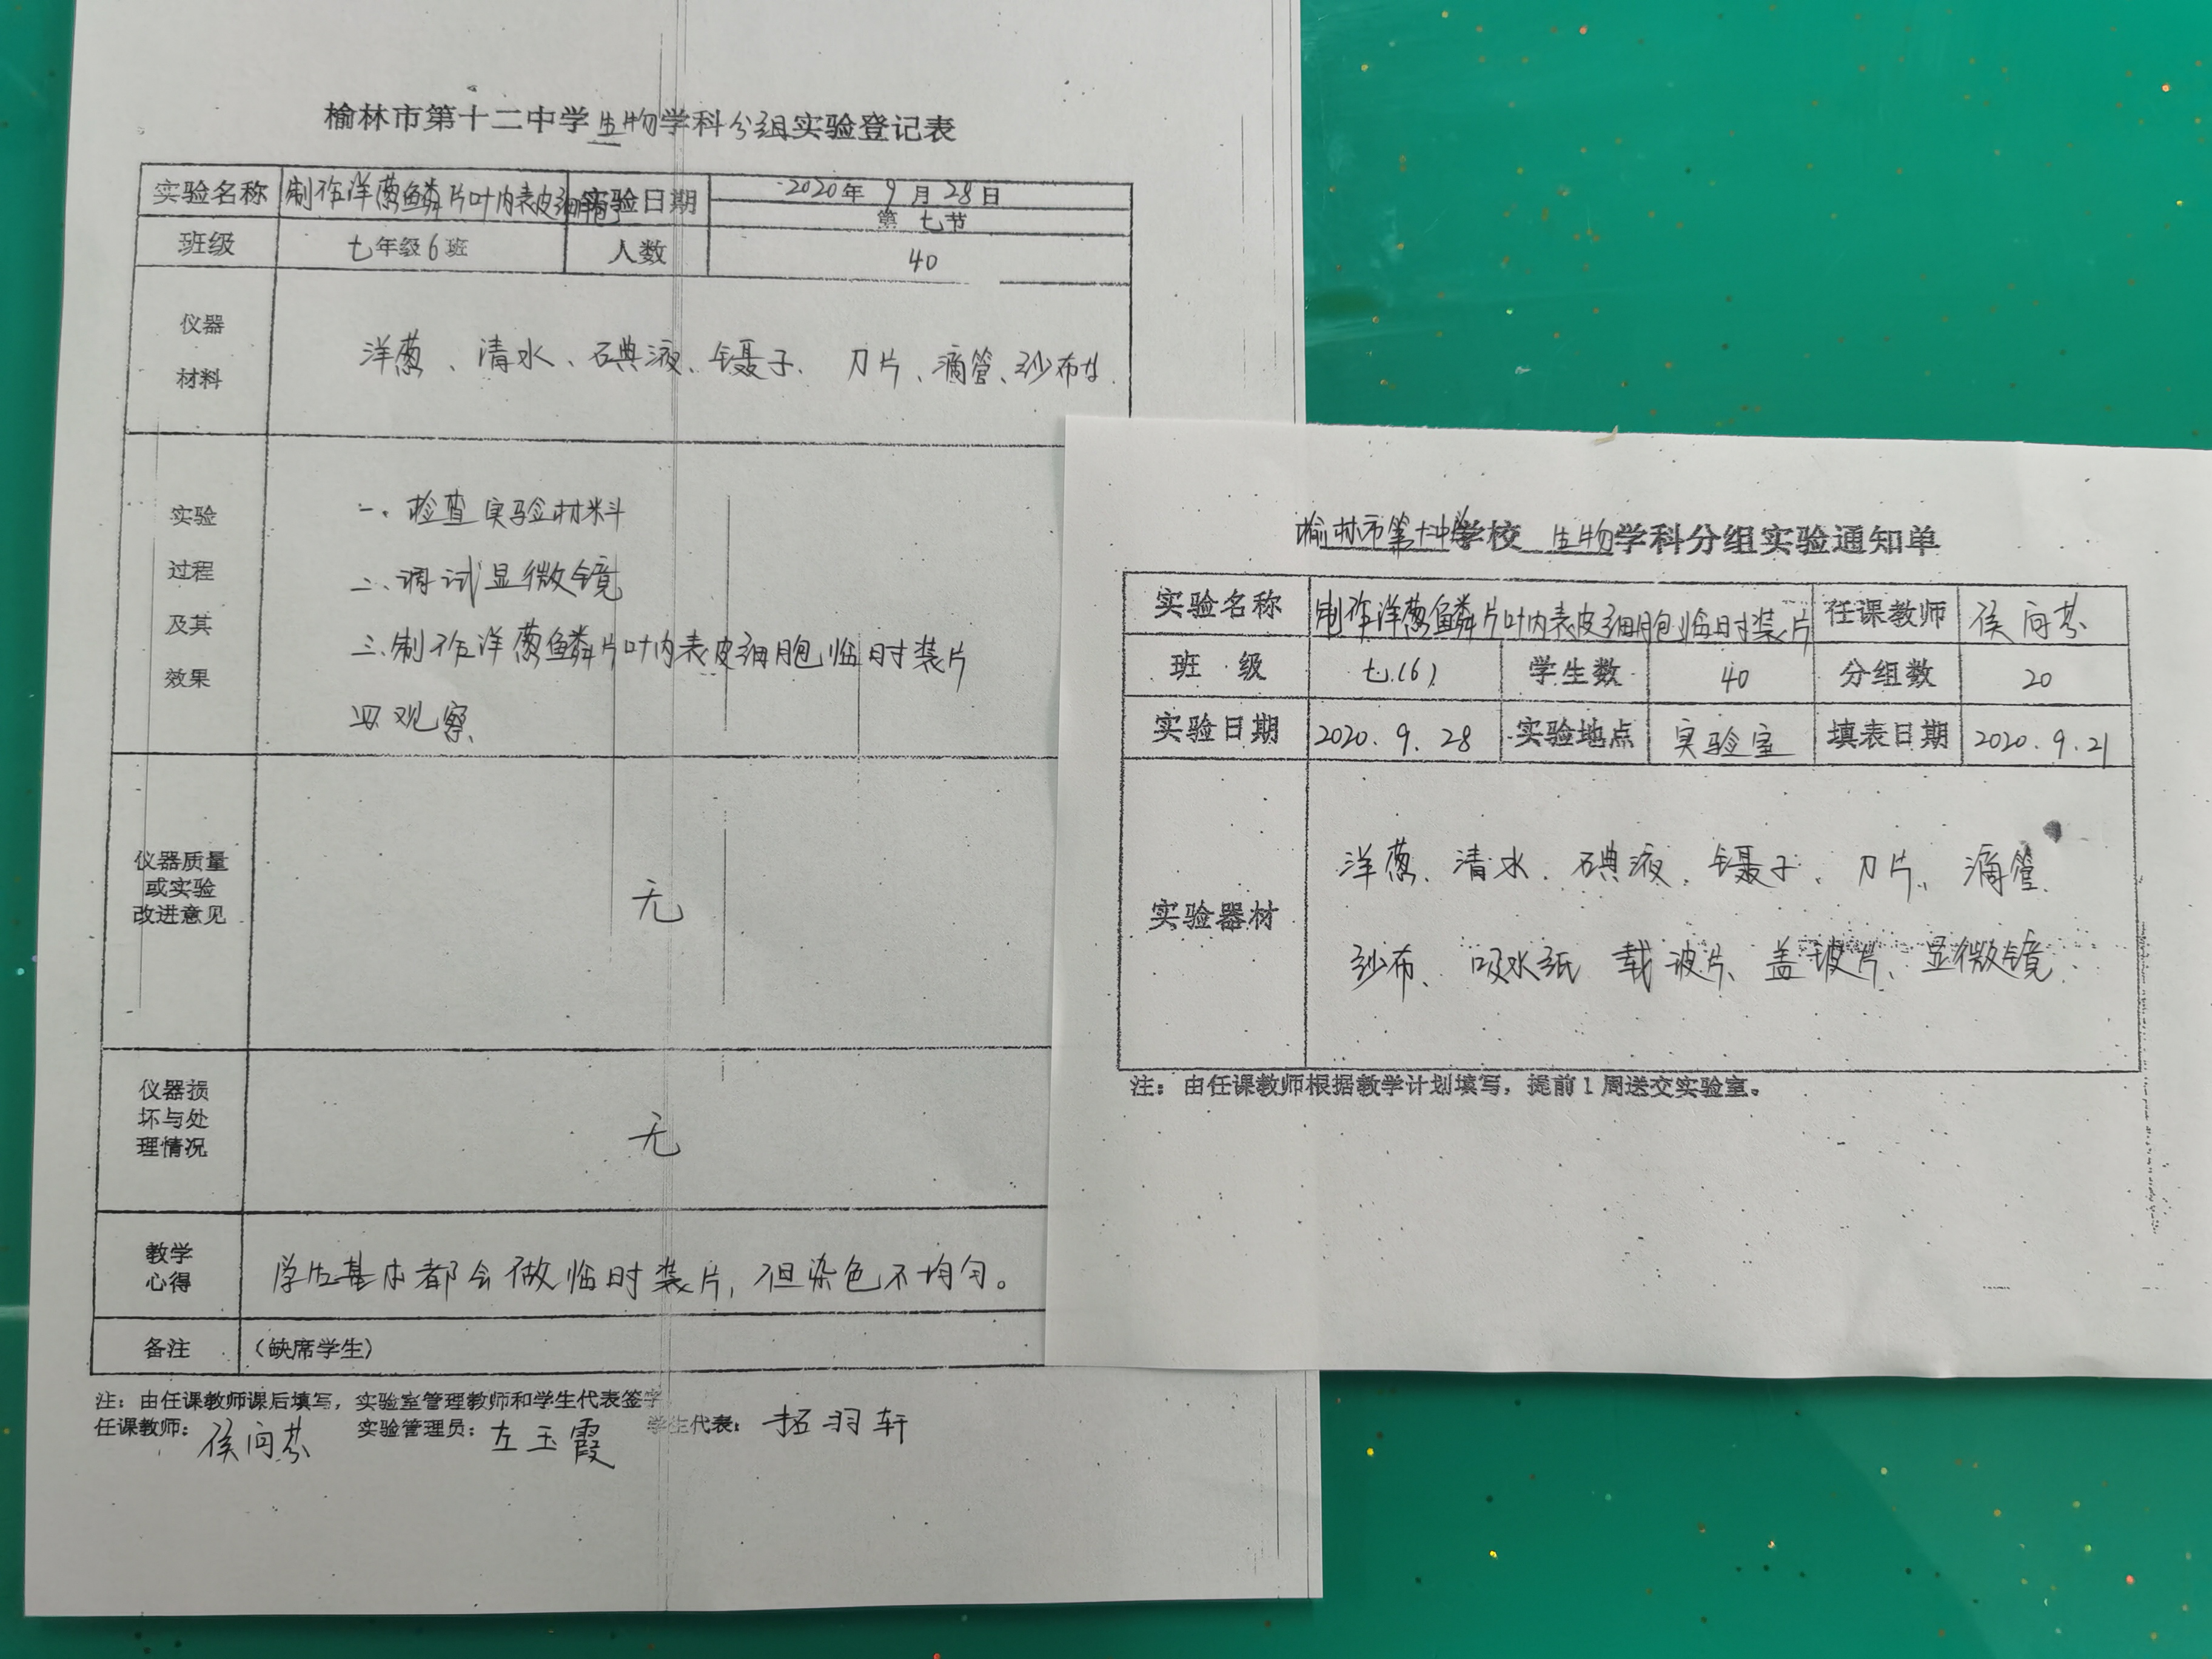 榆林市第十二中学生物学科分组实验登记表
实验名称 制作洋葱鳞片叶内表皮细胞 实验日期 2020年9月28日
第七节
班级 七年级6班 人数 40
仪器
材料
洋葱、清水、碘液、镊子、刀片、滴管、纱布
实验
过程
及其
效果
一、检查实验材料
二、调试显微镜
三、制作洋葱鳞片叶内表皮细胞临时装片
四 观察
仪器质量
或实验
改进意见
无
仪器损
坏与处
理情况
无
教学
心得
学生基本都会做临时装片,但染色不均匀。
备注 (缺席学生)
注:由任课教师课后填写,实验室管理教师和学生代表签字
任课教师: 实验管理员:左玉霞 学生代表:拓羽轩
榆林市第十二中学学校 生物学科分组实验通知单
实验名称 制作洋葱鳞片叶内表皮细胞临时装片 任课教师
班 级 七.(6) 学生数 40 分组数 20
实验日期 2020.9.28 实验地点 实验室 填表日期 2020.9.21
实验器材
洋葱、清水、碘液、镊子、刀片、滴管、
纱布、吸水纸 载玻片、盖玻片、显微镜
注:由任课教师根据教学计划填写,提前1周送交实验室。